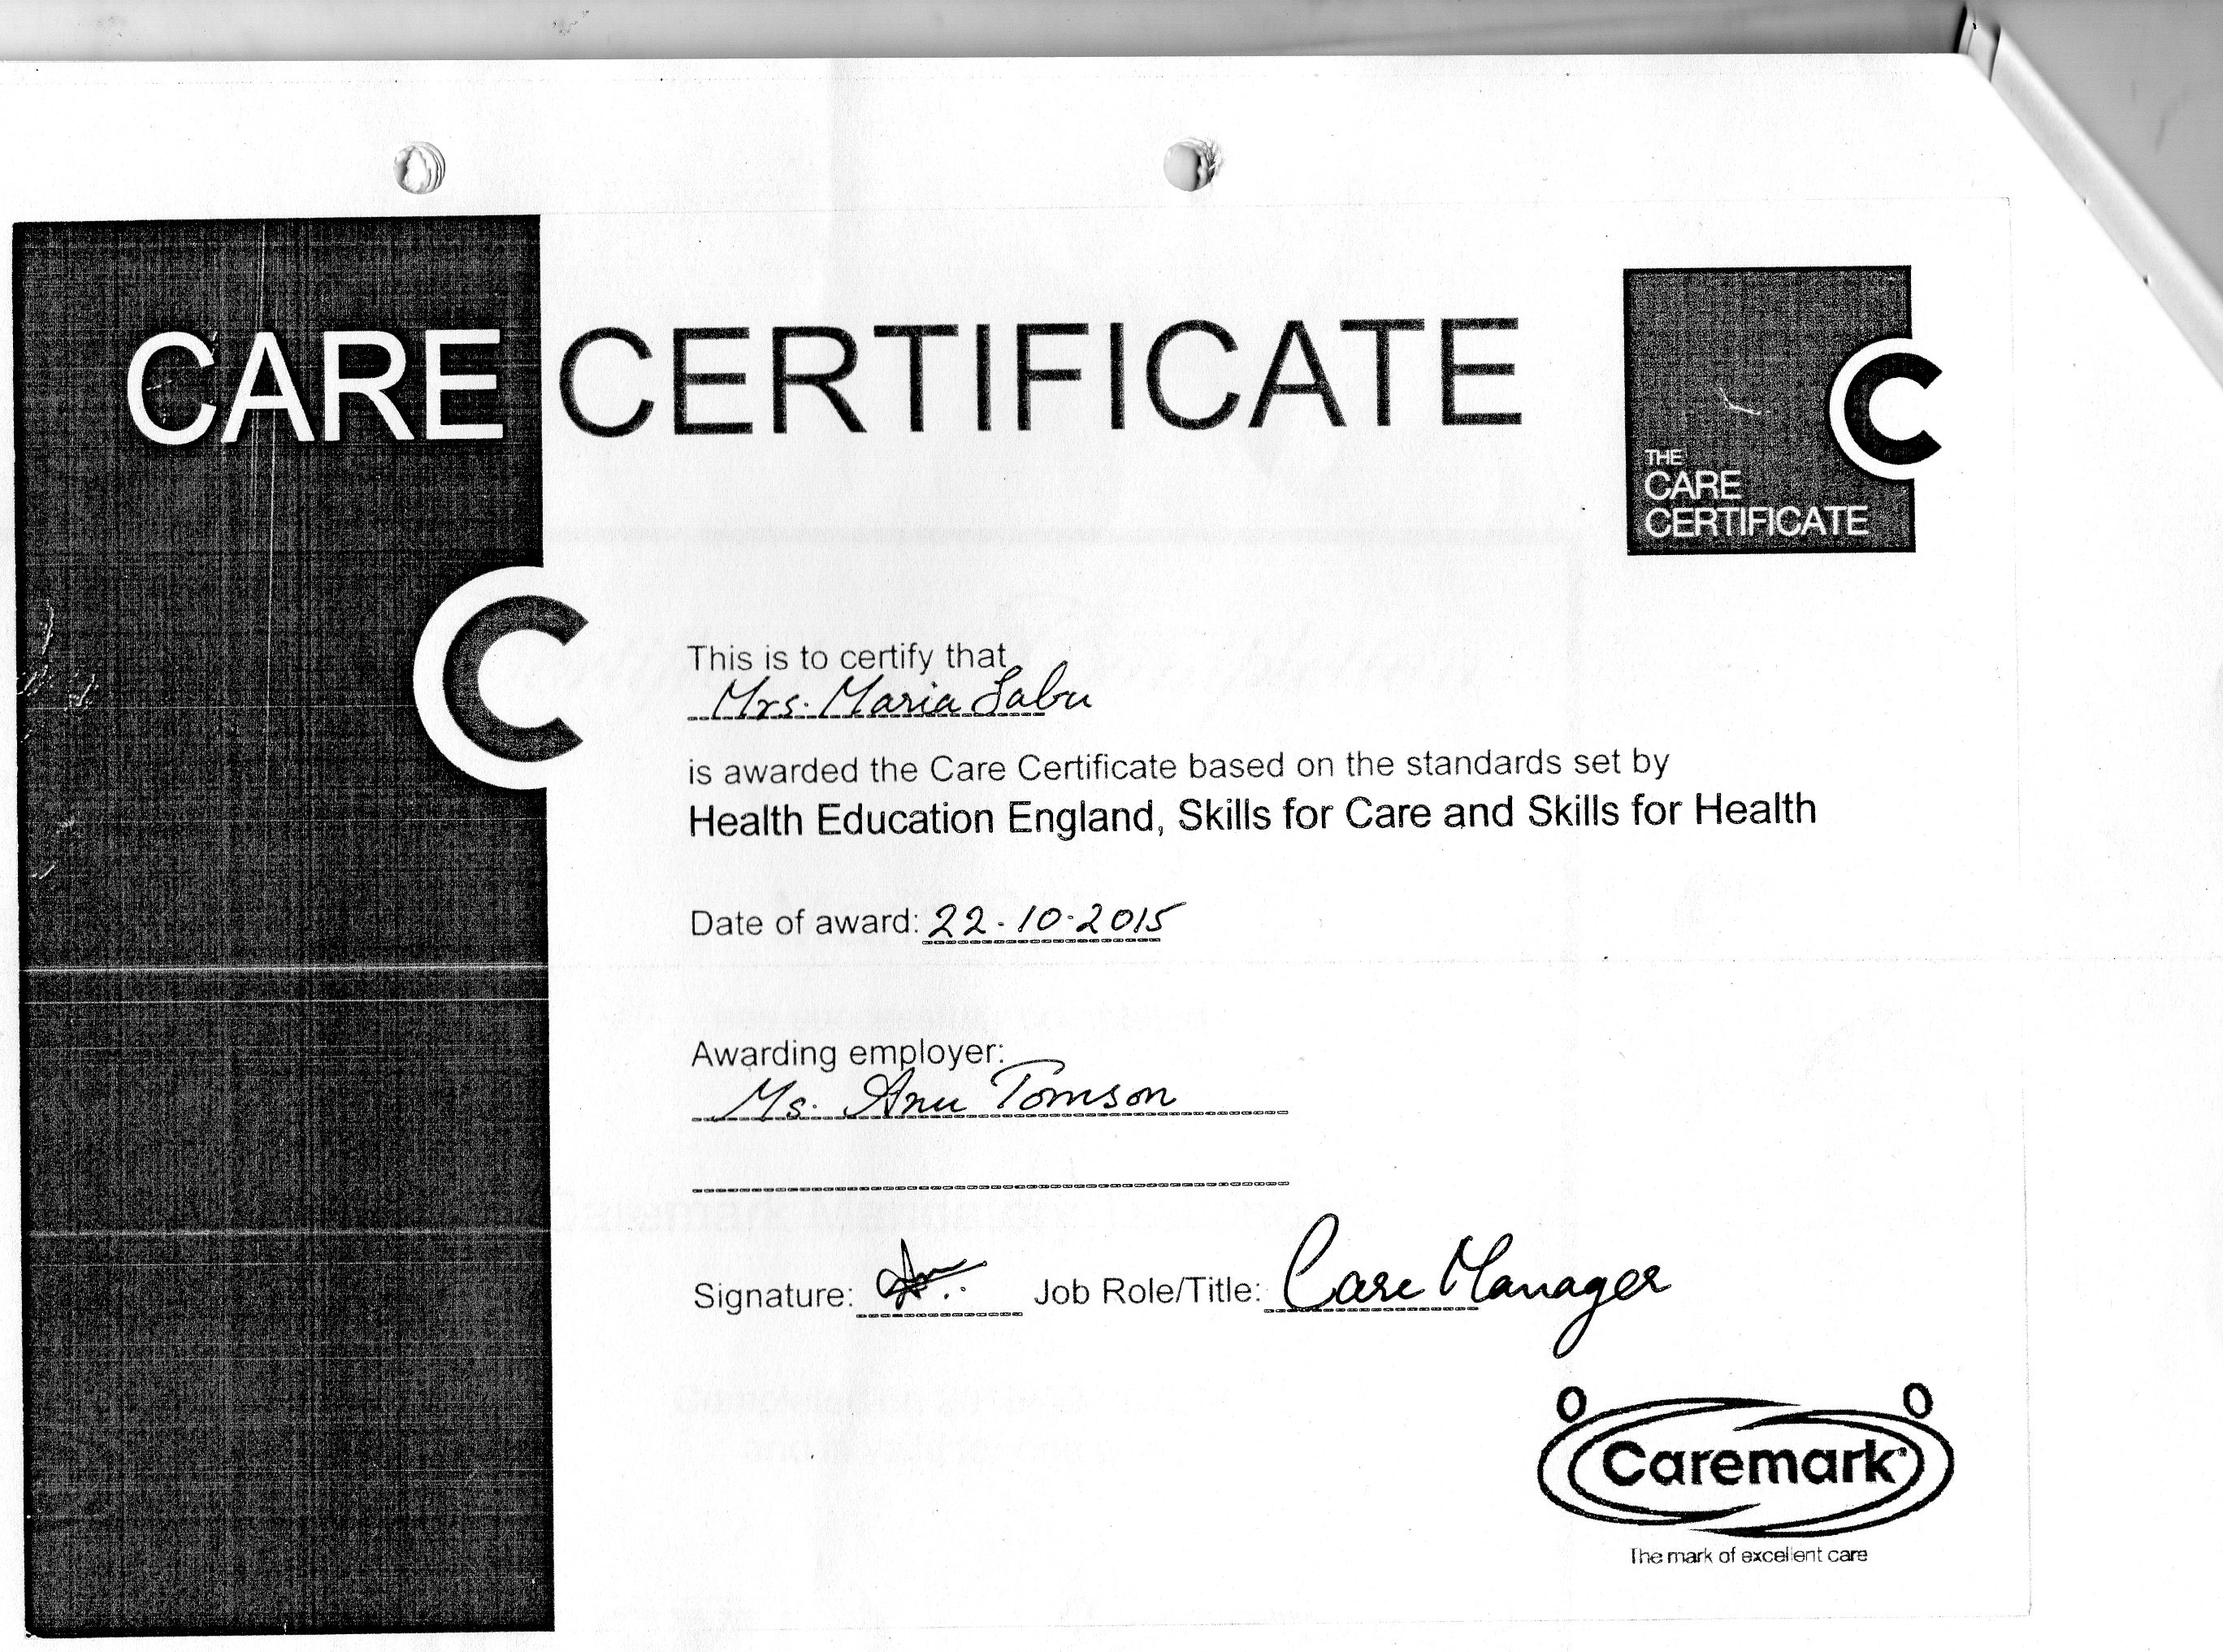 CARE CERTIFICATE
THE
CARE
CERTIFICATE
C
C
This is to certify that
Mrs. Maria Sabu
is awarded the Care Certificate based on the standards set by
Health Education England, Skills for Care and Skills for Health
Date of award: 22.10.2015
Awarding employer:
Ms. Anu Tomson
Signature: Job Role/Title: Care Manager
Caremark
The mark of excellent care